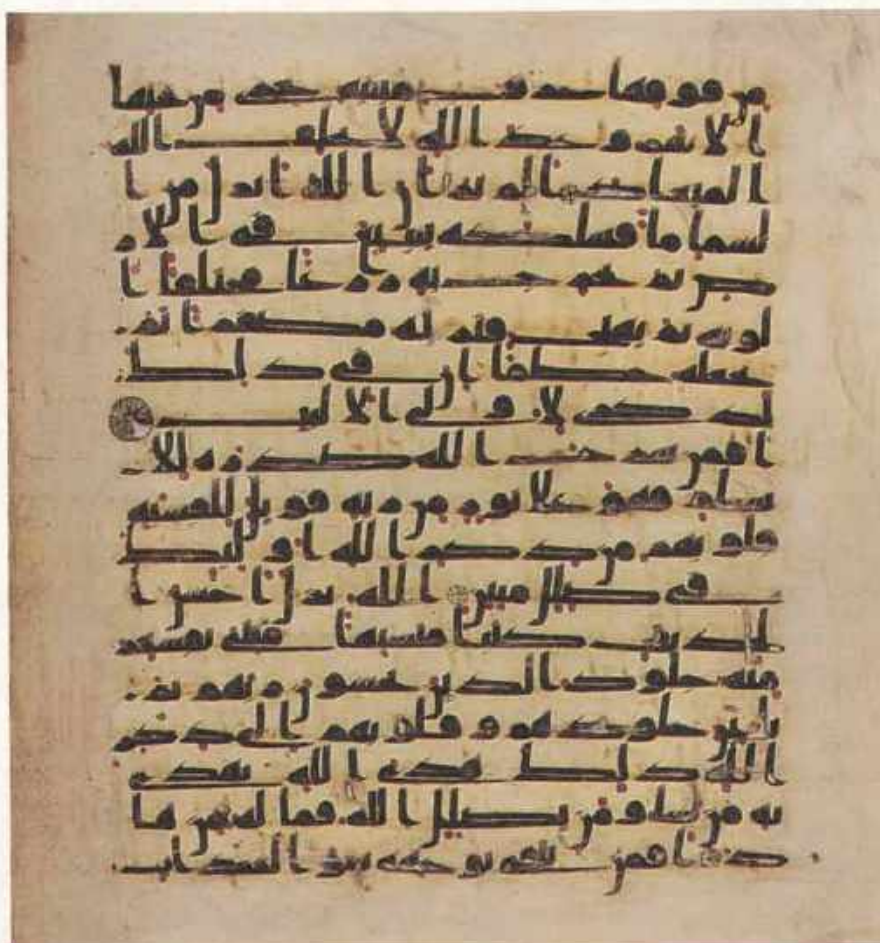 من فوقها غرف مبنية تجري من تحتها
الانهر وعد الله لا يخلف الله
الميعاد الم تر ان الله انزل من ا
لسما ما فسلكه ينبيع في الار
ض ثم يخرج به زرعا مختلفا ا
لونه ثم يهيج فتريه مصفرا ثم
يجعله حطما ان في ذلك
لذكرى لاولي الالبب
افمن شرح الله صدره للا
سلم فهو على نور من ربه فويل للقسية
قلوبهم من ذكر الله اوليك
في ضلل مبين الله نزل احسن ا
لحديث كتبا متشبها مثاني تقشعر
منه جلود الذين يخشون ربهم ثم
تلين جلودهم وقلوبهم الى ذكر
الله ذلك هدى الله يهدي
به من يشا ومن يضلل الله فما له من ها
د افمن يتقي بوجهه سو العذاب